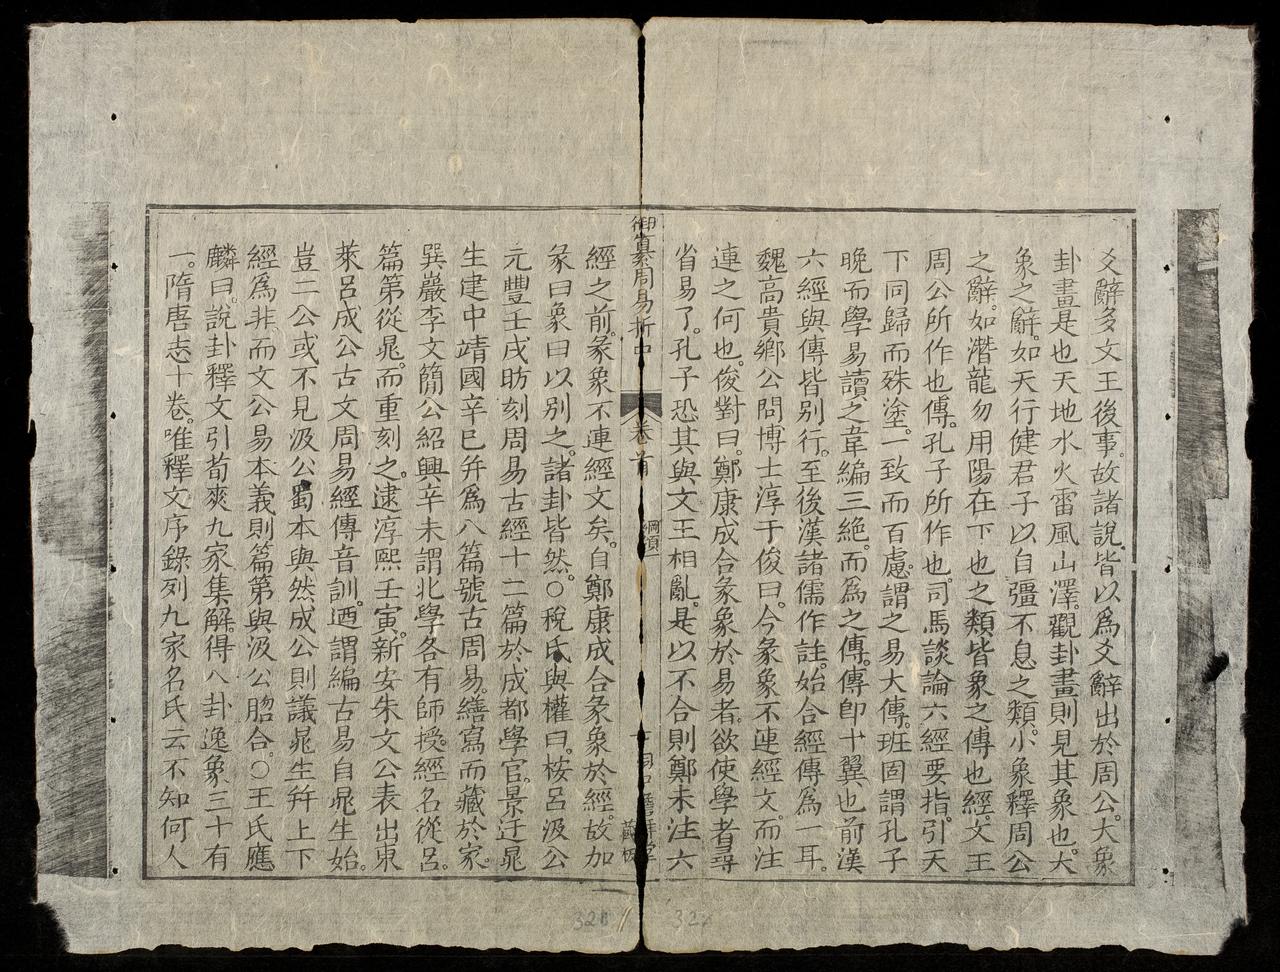 爻辭多文王後事。故諸說皆以爲爻辭出於周公。大象
卦畫是也天地水火雷風山澤。觀卦畫則見其象也。大
象之辭。如天行健君子以自彊不息之類。小象釋周公
之辭。如潛龍勿用陽在下也之類皆象之傳也。經。文王
周公所作也。傳。孔子所作也。司馬談論六經要指。引天
下同歸而殊塗。一致而百慮。謂之易大傳。班固謂孔子
晚而學易。讀之韋編三絕。而爲之傳。傳即十翼也。前漢
六經與傳皆別行。至後漢諸儒作註。始合經傳爲一耳。
魏高貴鄉公問博士淳于俊曰。今彖象不連經文。而注
連之何也。俊對曰。鄭康成合彖象於易者。欲使學者尋
省易了。孔子恐其與文王相亂。是以不合則鄭未注六
御纂周易折中 卷首 綱領一
經之前。彖象不連經文矣。自鄭康成合彖象於經。故加
彖曰象曰以別之。諸卦皆然。○稅氏與權曰。桉呂汲公
元豐壬戌昉刻周易古經十二篇於成都學官。景迂晁
生建中靖國辛巳并爲八篇。號古周易。繕寫而藏於家。
巽巖李文簡公紹興辛未謂北學各有師授。經名從呂。
篇第從晁。而重刻之。逮淳熙壬寅。新安朱文公表出東
萊呂成公古文周易經傳音訓。迺謂編古易自晁生始。
豈二公或不見汲公蜀本與。然成公則議晁生并上下
經爲非。而文公易本義則篇第與汲公脗合。○王氏應
麟曰。說卦釋文引荀爽九家集解。得八卦逸象三十有
一。隋唐志十卷。唯釋文序錄列九家名氏云不知何人
320
32